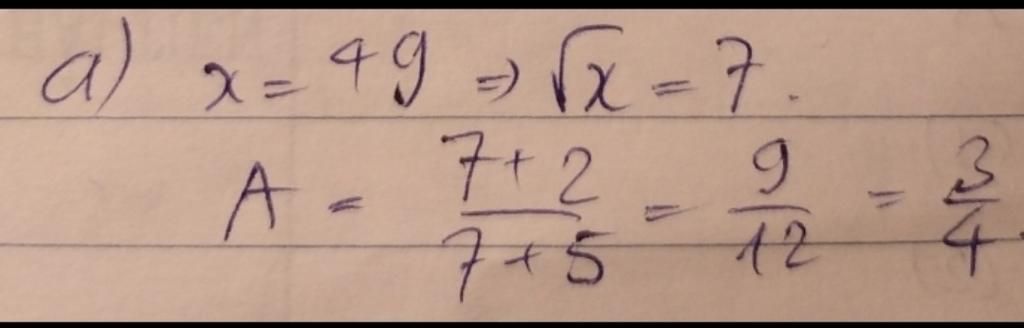 a) x = 49 ⇒ √x = 7.
A = \frac{7+2}{7+5} = \frac{9}{12} = \frac{3}{4}.